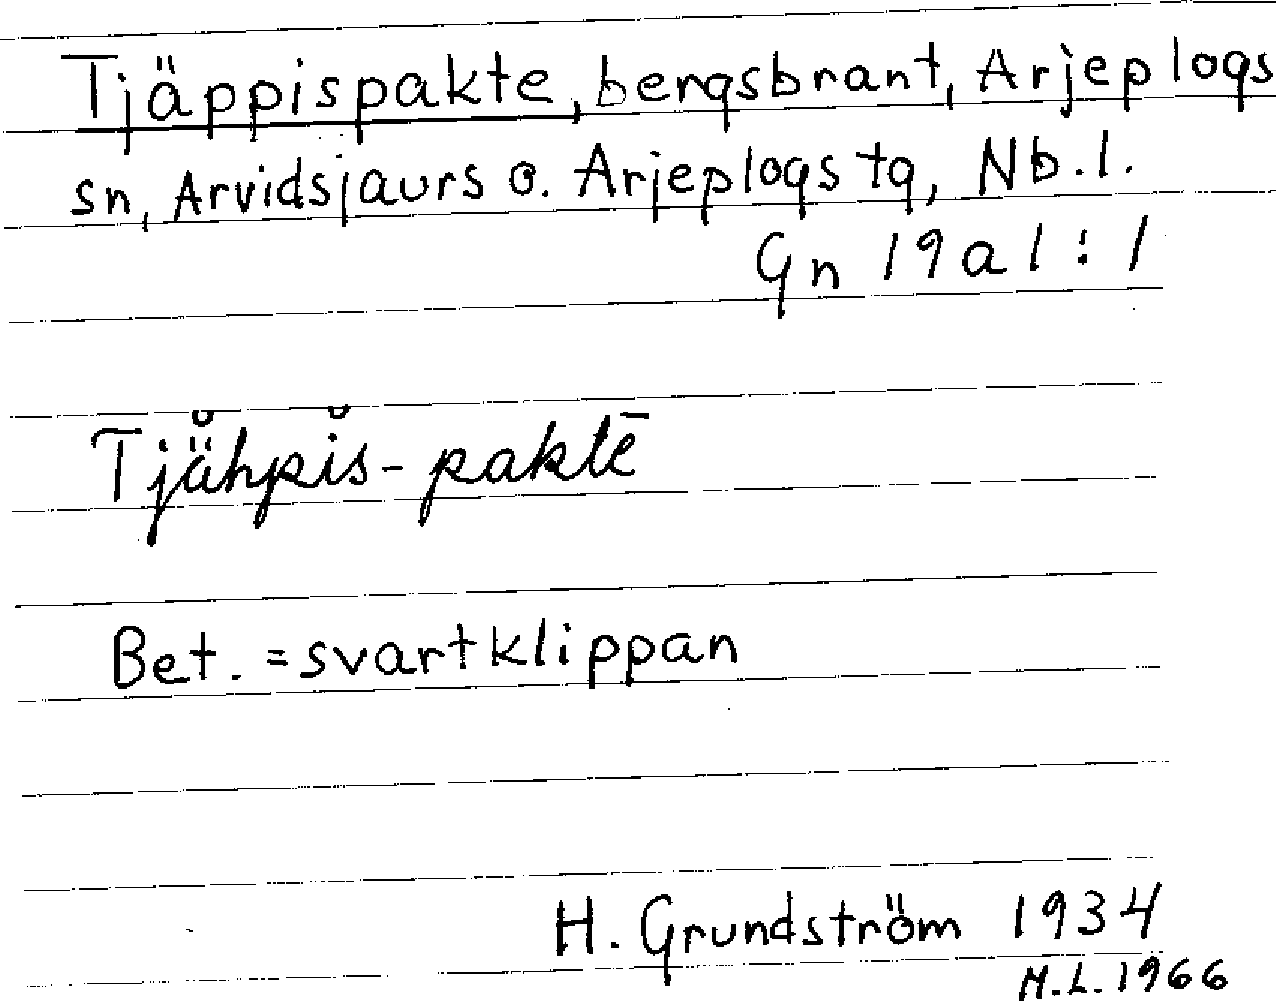 Tjäppispakte, bergsbrant, Arjeplogs
sn, Arvidsjaurs o. Arjeplogs tg, Nb.l.
Gn 19 a 1 : 1
Tjä̆hpĭs-paktē
Bet. = svartklippan
H. Grundström 1934
M.L. 1966